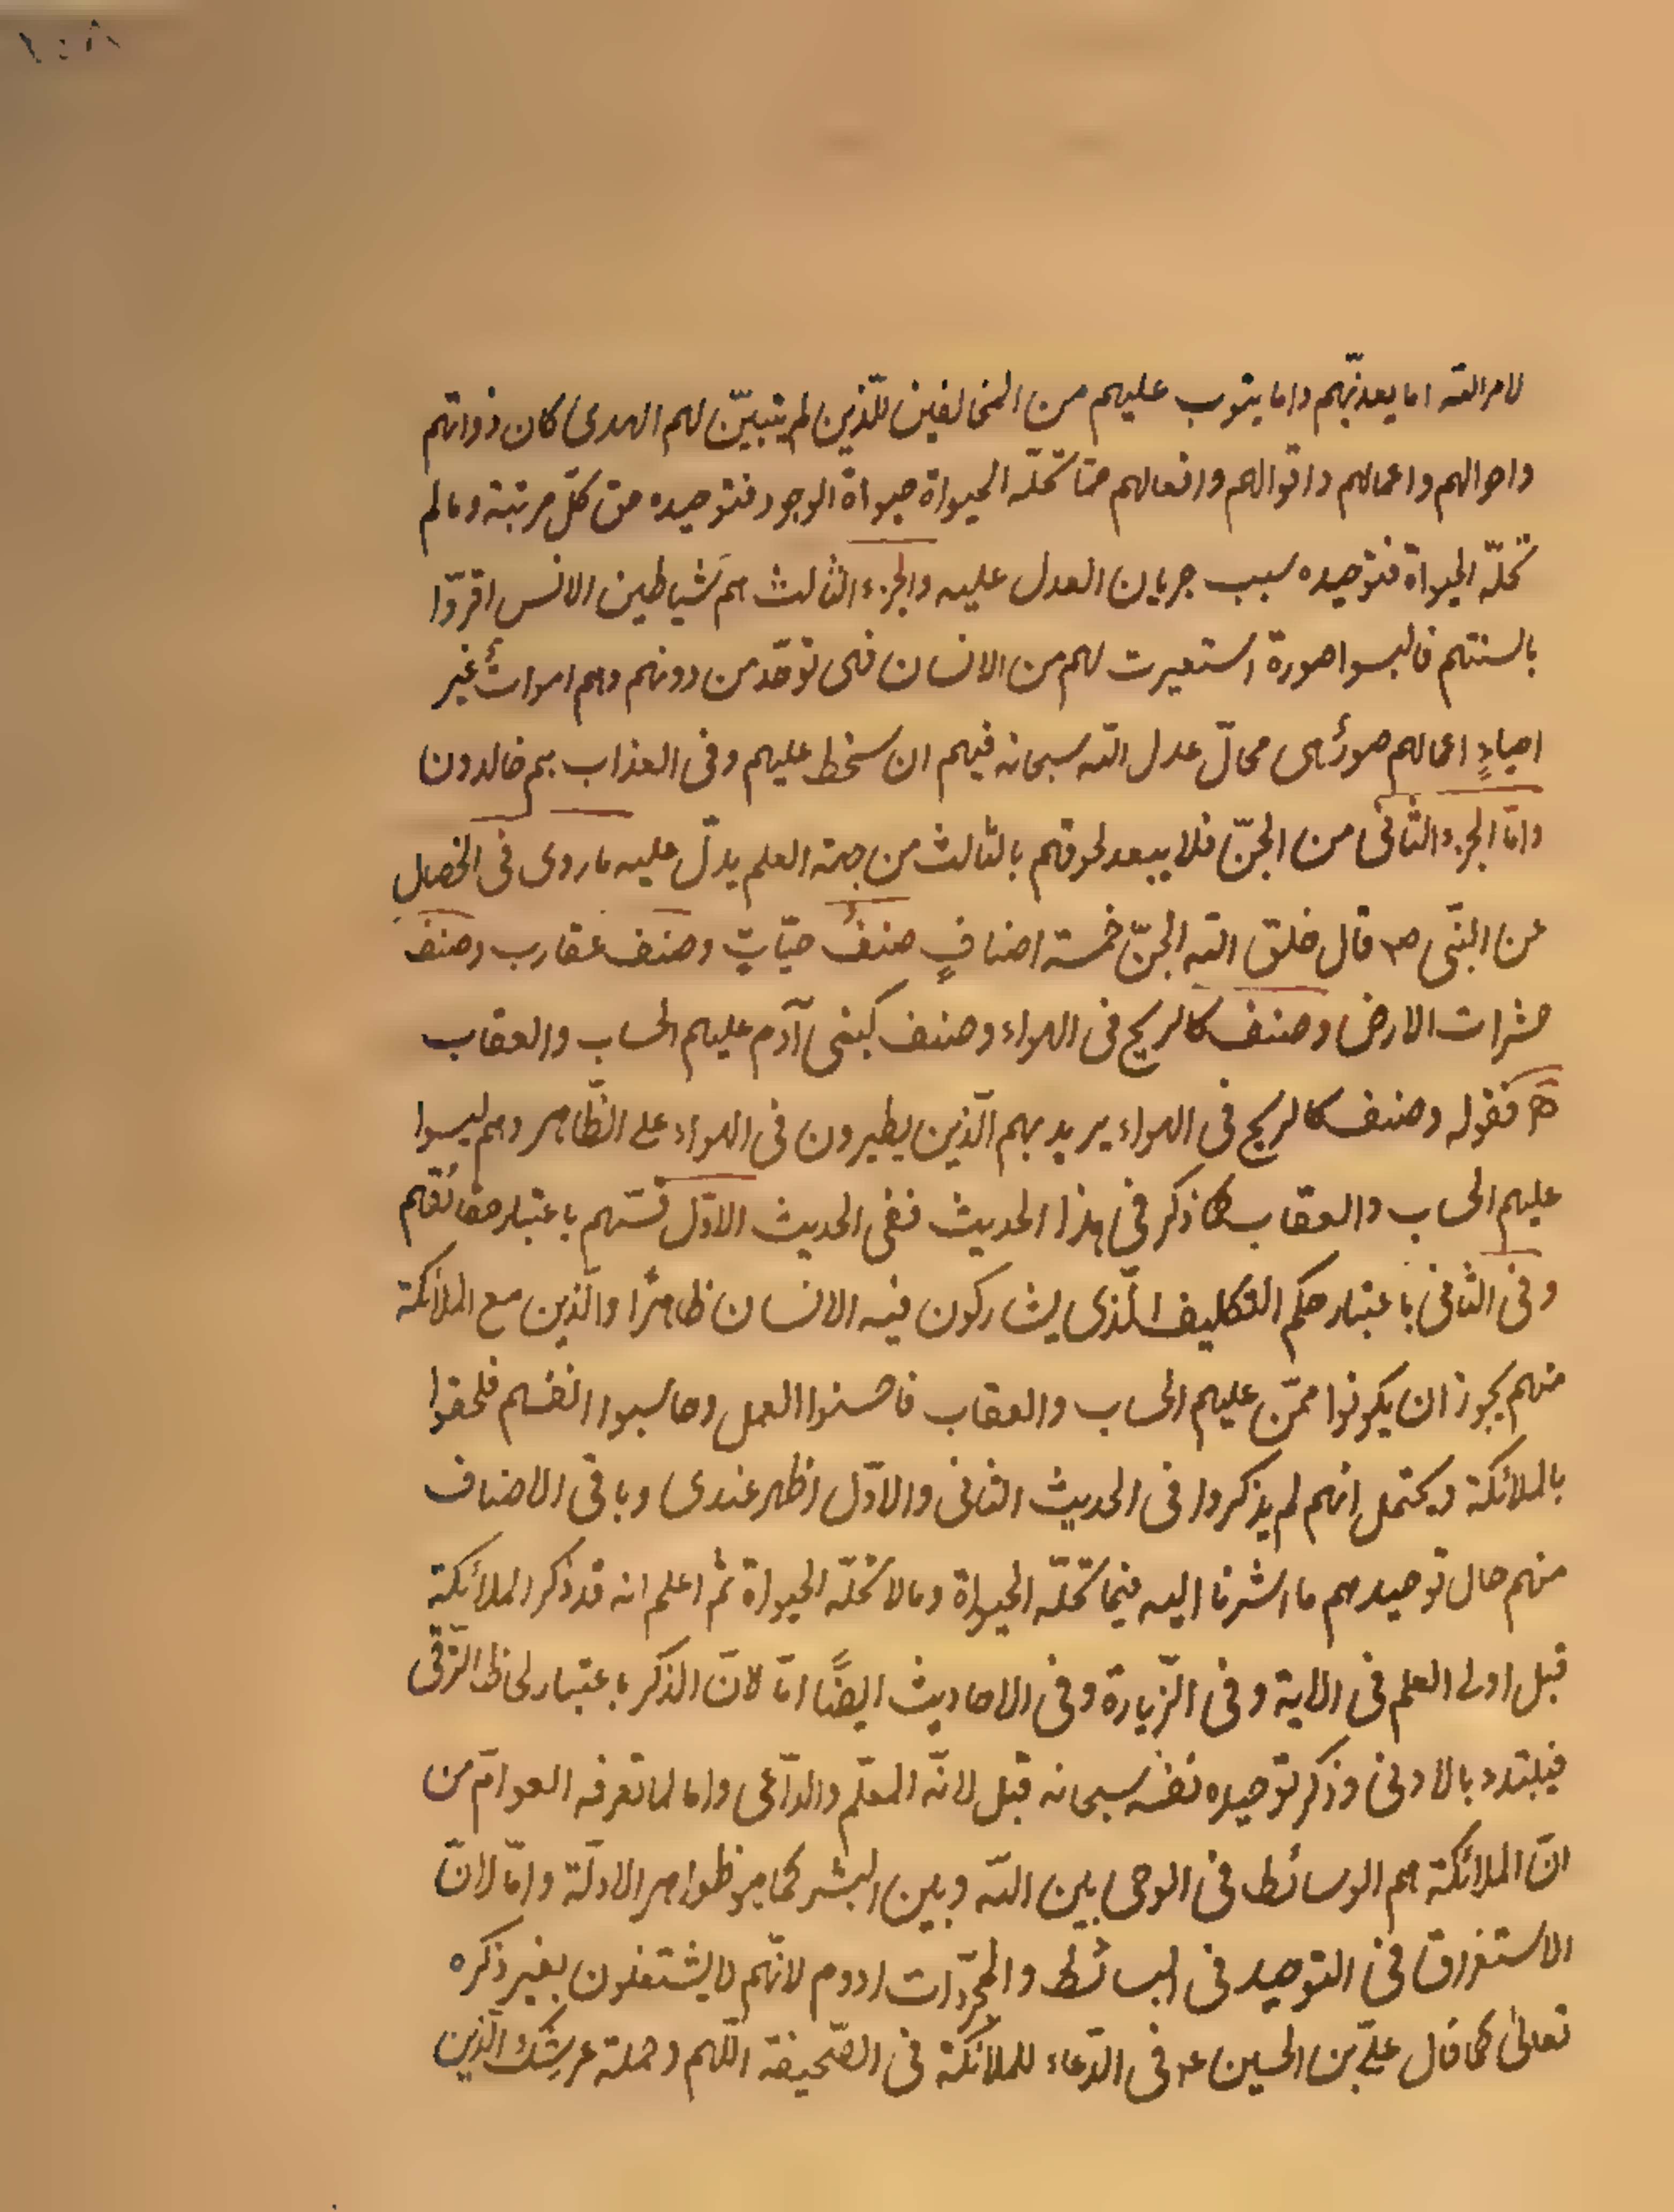 لامر الله اما يعذبهم واما يتوب عليهم من المخالفين للّذين لم يتبيّن لهم الهدى كان ذواتهم
واحوالهم واعمالهم واقوالهم وافعالهم ممّا تحلّه الحيوة حيوة الوجود فتوحيده حق كلّ مرتبة وما لم
تحلّه الحيوة فتوحيده سبب جريان العدل عليه والجزء الثالث هم شياطين الانس اقرّوا
بالسنتهم فالبسوا صورة استعيرت لهم من الانسان فهى توحّد من دونهم وهم امواتٌ غير
احياءٍ اعمالهم صورٌ هى محالّ عدل الله سبحانه فيهم ان سخط عليهم وفى العذاب هم خالدون
وامّا الجزء الثانى من الجنّ فلا يبعد لحوقهم بالثالث من جهة العلم يدلّ عليه ما روى فى الخصال
عن النبّى ص قال خلق الله الجنّ خمسة اصنافٍ صنفٌ حيّاتٍ وصنف عقارب وصنف
حشرات الارض وصنف كالريح فى الهواء وصنف كبنى آدم عليهم الحساب والعقاب
ه فقوله وصنف كالريح فى الهواء يريد بهم الّذين يطيرون فى الهواء على الظّاهر وهم ليسوا
عليهم الحساب والعقاب كما ذكر فى هذا الحديث ففى الحديث الاوّل قسّمهم باعتبار حقائقهم
وفى الثانى باعتبار حكم التكليف الّذى يشاركون فيه الانسان ظاهرًا والّذين مع الملائكة
منهم يجوز ان يكونوا ممّن عليهم الحساب والعقاب فاحسنوا العمل وحاسبوا انفسهم فلحقوا
بالملائكة ويحتمل انهم لم يذكروا فى الحديث الثانى والاوّل اظهر عندى وباقى الاصناف
منهم حال توحيدهم ما اشرنا اليه فيما تحلّه الحيوة وما لا تحلّه الحيوة ثم اعلم انه قد ذكر الملائكة
قبل اولى العلم فى الاية وفى الزّيارة وفى الاحاديث ايضًا امّا لانّ الذكر باعتبار لحاظ الترّقى
فيبتدء بالادنى وذكر توحيده نفسه سبحانه قبل لانّه المعلّم والدّاعى واما لما تعرفه العوامّ من
انّ الملائكة هم الوسائط فى الوحى بين الله وبين البشر كما هو ظواهر الادلّة وامّا لانّ
الاستغراق فى التوحيد فى البسائط والمجرّدات ادوم لانّهم لا يشتغلون بغير ذكره
تعالى كما قال علىّ بن الحسين ع فى الدّعاء للملائكة فى الصّحيفة اللّهم وحملة عرشك الّذين